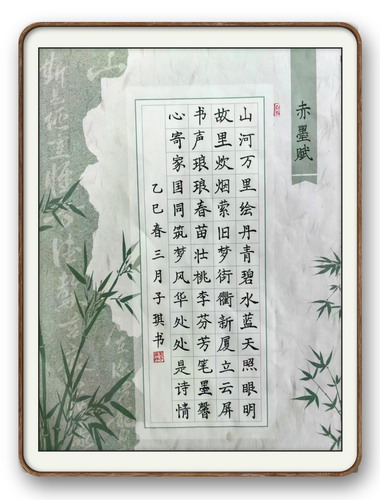 赤墨赋
山河万里绘丹青碧水蓝天照眼明
故里炊烟萦旧梦街衢新厦立云屏
书声琅琅春苗壮桃李芬芳笔墨馨
心寄家国同筑梦风华处处是诗情
乙巳春三月子琪书